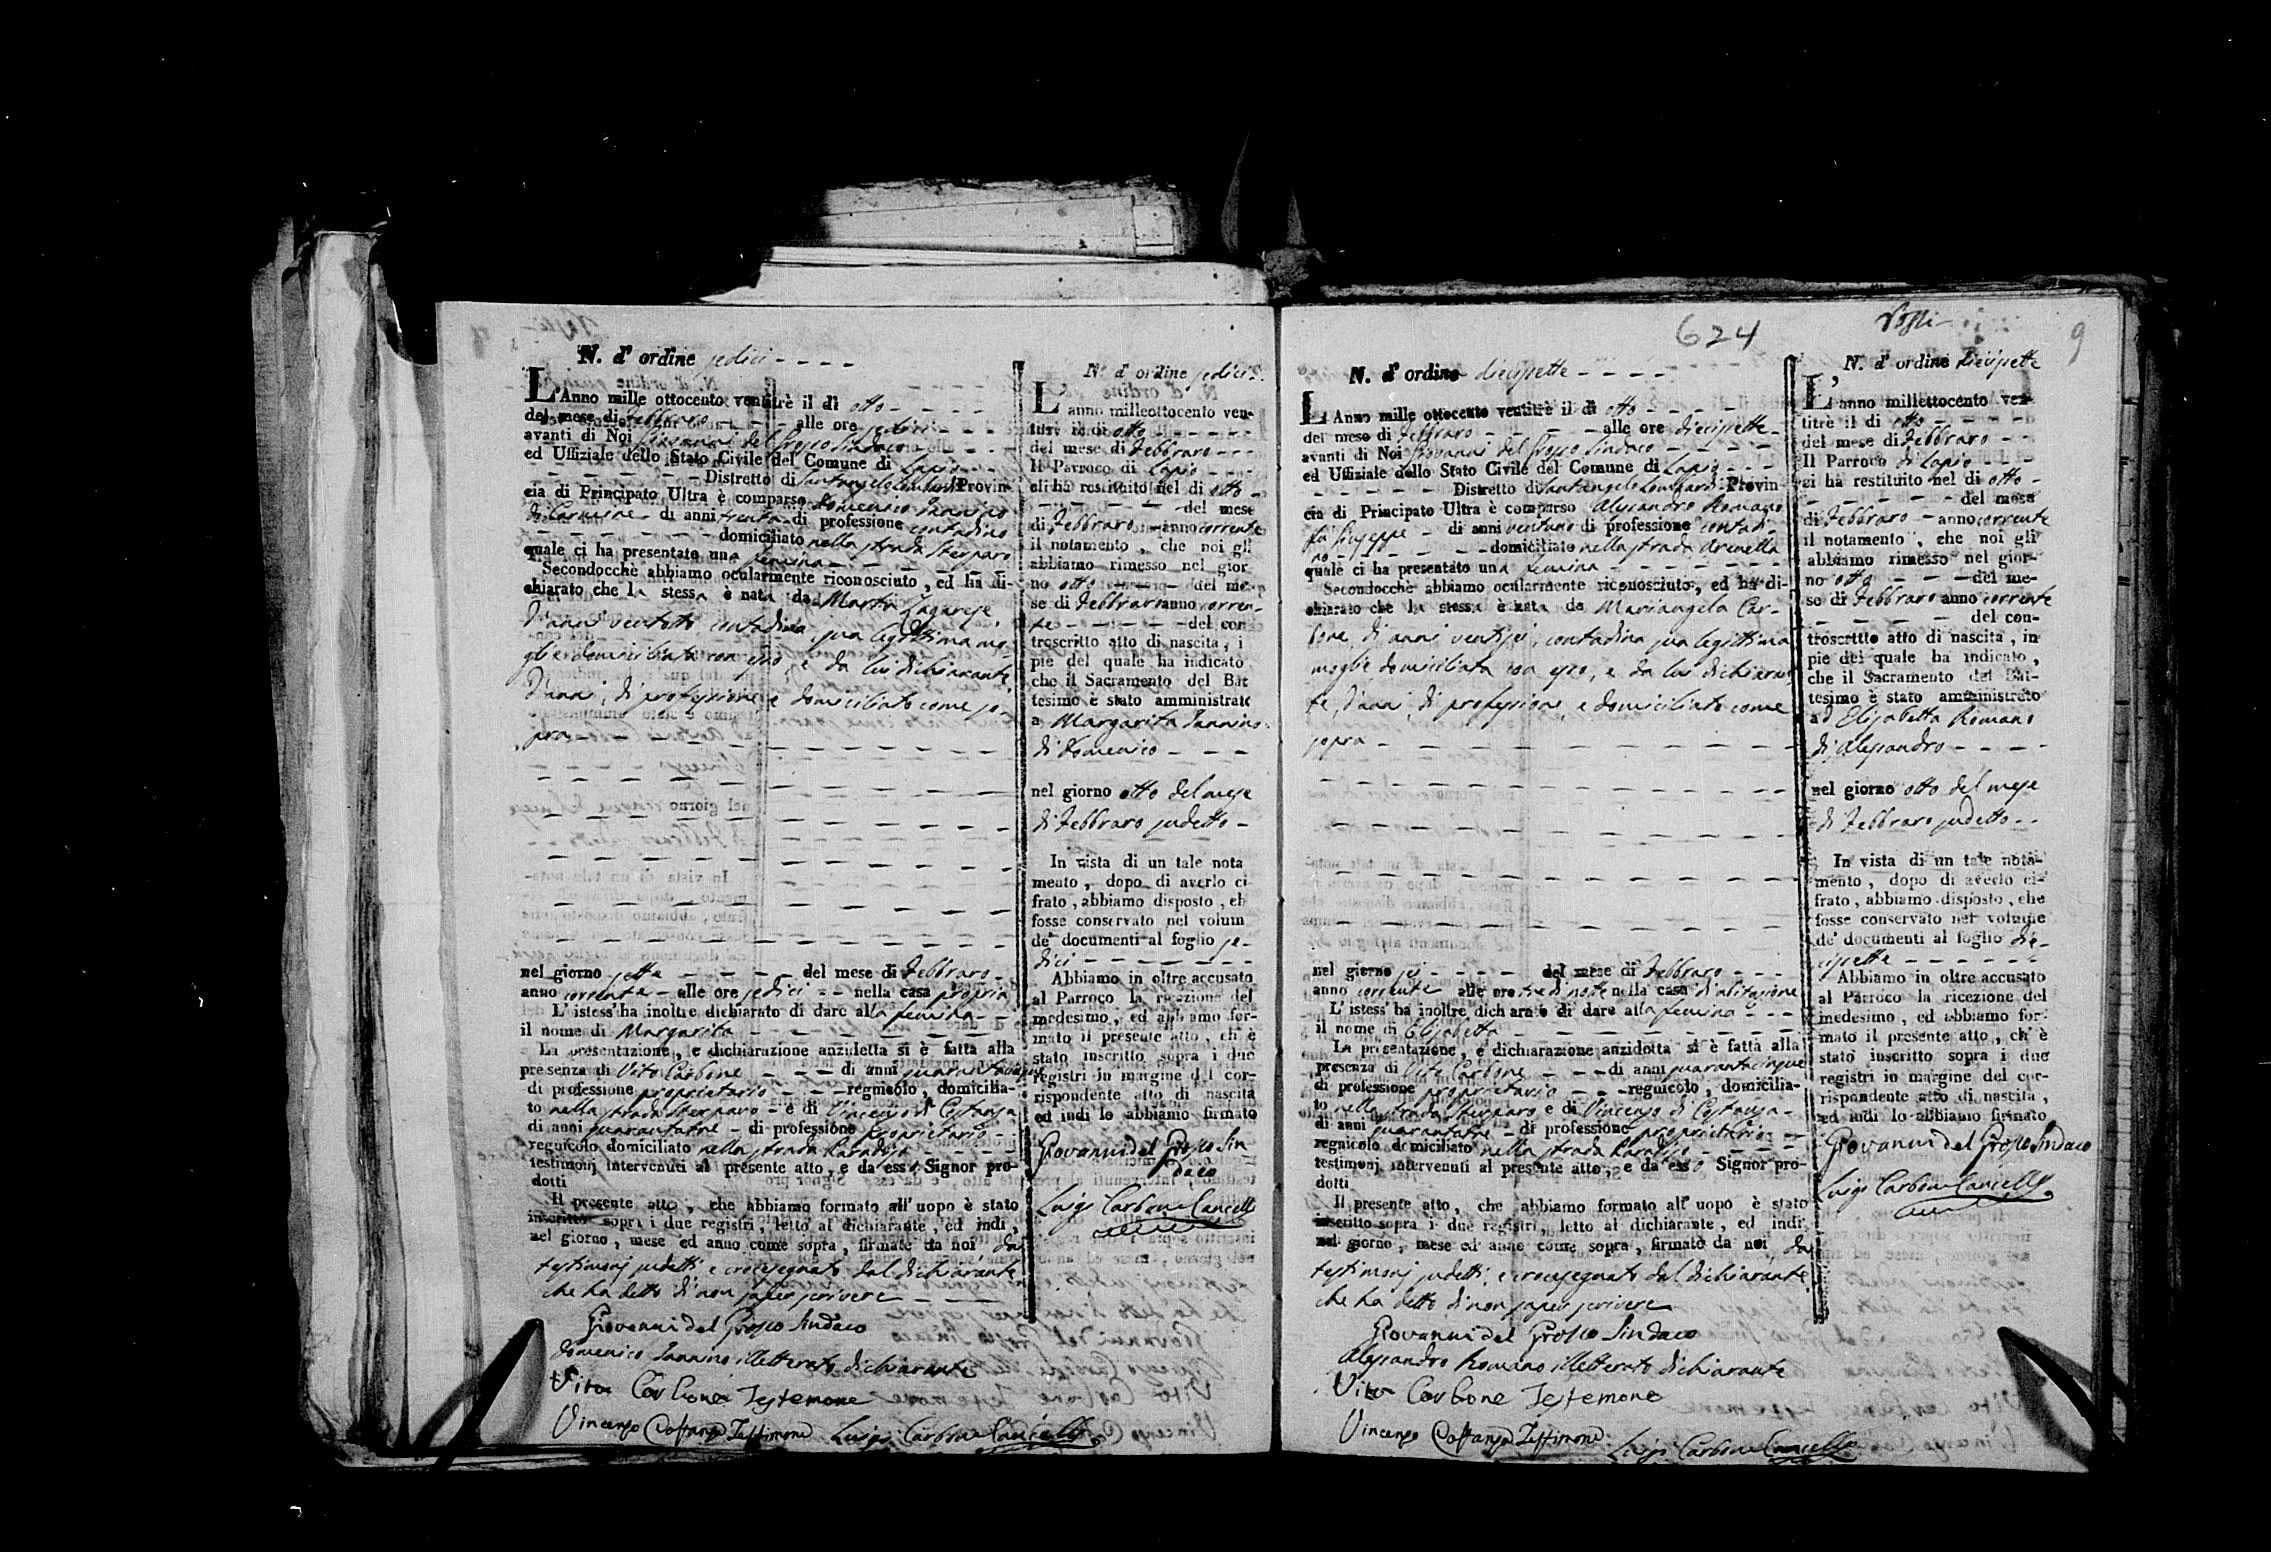 N. d' ordine sedici
L'Anno mille ottocento ventitrè il dì otto
del mese di Febbraro alle ore sedici
avanti di Noi Giovanni del Grosso Sindaco
ed Uffiziale dello Stato Civile del Comune di Lapio
Distretto di Santangelo Lombardi Provin-
cia di Principato Ultra è comparso Domenico Iannino
di Carmine di anni trenta di professione contadino
domiciliato nella strada Sterparo
quale ci ha presentato una femina
Secondocchè abbiamo ocularmente riconosciuto, ed ha di-
chiarato che la stessa è nata da Marta Zagarese
d'anni ventotto contadina sua legittima mo-
glie domiciliata con esso, e da lui dichiarante
d'anni, di professione e domiciliato come so-
pra
nel giorno sette del mese di Febbraro
anno corrente alle ore sedici nella casa propria
L' istess' ha inoltre dichiarato di dare alla femina
il nome di Margarita
La presentazione, e dichiarazione anzidetta si è fatta alla
presenza di Vito Carbone di anni
di professione proprietario regnicolo, domicilia-
to nella strada Sterparo e di Vincenzo di Costanza
di anni quarantatre di professione proprietario
regnicolo domiciliato nella strada Paradiso
testimonj intervenuti al presente atto, e da esso Signor pro-
dotti
Il presente atto, che abbiamo formato all' uopo è stato
inscritto sopra i due registri, letto al dichiarante, ed indi,
nel giorno, mese ed anno come sopra, firmato da noi da
testimonj sudetti e crocesegnato dal dichiarante
che ha detto di non saper scrivere
Giovanni del Grosso Sindaco
Domenico Iannino illetterato dichiarante
Vito Carbone Testemone
Vincenzo Costanza Testimone Luigi Carbone Cancell.
N. d' ordine sedici
L' anno milleottocento ven-
titrè il di otto
del mese di Febbraro
Il Parroco di Lapio
ci ha restituito nel di otto
del mese
di Febbraro anno corrente
il notamento, che noi gli
abbiamo rimesso nel gior-
no otto del me-
se di Febbraro anno corren-
te del con-
troscritto atto di nascita, i
pie del quale ha indicato
che il Sacramento del Bat
tesimo è stato amministrato
a Margarita Iannino
di Domenico
nel giorno otto del mese
di Febbraro sudetto
In vista di un tale nota
mento, dopo di averlo ci
frato, abbiamo disposto, ch
fosse conservato nel volum
de' documenti al foglio se-
dici
Abbiamo in oltre accusato
al Parroco la ricezione del
medesimo, ed abbiamo for-
mato il presente atto, ch' è
stato inscritto sopra i due
registri in margine del cor-
rispondente atto di nascita
ed indi lo abbiamo firmato
Giovanni del Grosso Sin
daco
Luigi Carbone Cancell.
624
9
N. d' ordine diecisette
L'Anno mille ottocento ventitrè il dì otto
del mese di Febbraro alle ore diecisette
avanti di Noi Giovanni del Grosso Sindaco
ed Uffiziale dello Stato Civile del Comune di Lapio
Distretto di Santangelo Lombardi Provin
cia di Principato Ultra è comparso Alesandro Romano
fu Giuseppe di anni ventuno di professione contadi-
no domiciliato nella strada Arenella
quale ci ha presentato una femina
Secondocchè abbiamo ocularmente riconosciuto, ed ha di-
chiarato che la stessa è nata da Mariangela Car-
bone, di anni ventisei, contadina sua legittima
moglie domiciliata con esso, e da lui dichiaran-
te, d'anni, di professione, e domiciliato come
sopra
nel giorno sei del mese di Febbraro
anno corrente alle ore tre di notte nella casa d'abitazione
L' istess' ha inoltre dichiarato di dare alla femina
il nome di Elisabetta
La presentazione, e dichiarazione anzidotta si è fatta alla
presenza di Vito Carbone di anni quarantacinque
di professione proprietario regnicolo, domicilia-
to nella strada Sterparo e di Vincenzo di Costanza
di anni quarantatre di professione proprietario
regnicolo domiciliato nella strada Paradiso
testimonj intervenuti al presente atto, e da esso Signor pro-
dotti
Il presente atto, che abbiamo formato all' uopo è stato
inscritto sopra i due registri, letto al dichiarante, ed indi
nel giorno, mese ed anno come sopra, firmato da noi da
testimonj sudetti, e crocesegnato dal dichiarante
che ha detto di non saper scrivere
Giovanni del Grosso Sindaco
Alesandro Romano illetterato dichiarante
Vito Carbone Testemone
Vincenzo Costanza Testimone Luigi Carbone Cancell.
N. d' ordine diecisette
L' anno millettocento ven-
titrè il di otto
del mese di Febbraro
Il Parroco di Lapio
ci ha restituito nel di otto
del mese
di Febbraro anno corrente
il notamento, che noi gli
abbiamo rimesso nel gior-
no otto del me-
se di Febbraro anno corrente
del con-
troscritto atto di nascita, in
pie del quale ha indicato,
che il Sacramento del Bat-
tesimo è stato amministrato
ad Elisabetta Romano
di Alesandro
nel giorno otto del mese
di Febbraro sudetto
In vista di un tale nota-
mento, dopo di averlo ci-
frato, abbiamo disposto, che
fosse conservato nel volume
de' documenti al foglio die-
cisette
Abbiamo in oltre accusato
al Parroco la ricezione del
medesimo, ed abbiamo for-
mato il presente atto, ch' è
stato inscritto sopra i due
registri in margine del cor-
rispondente atto di nascita,
ed indi lo abbiamo firmato
Giovanni del Grosso Sindaco
Luigi Carbone Cancell.